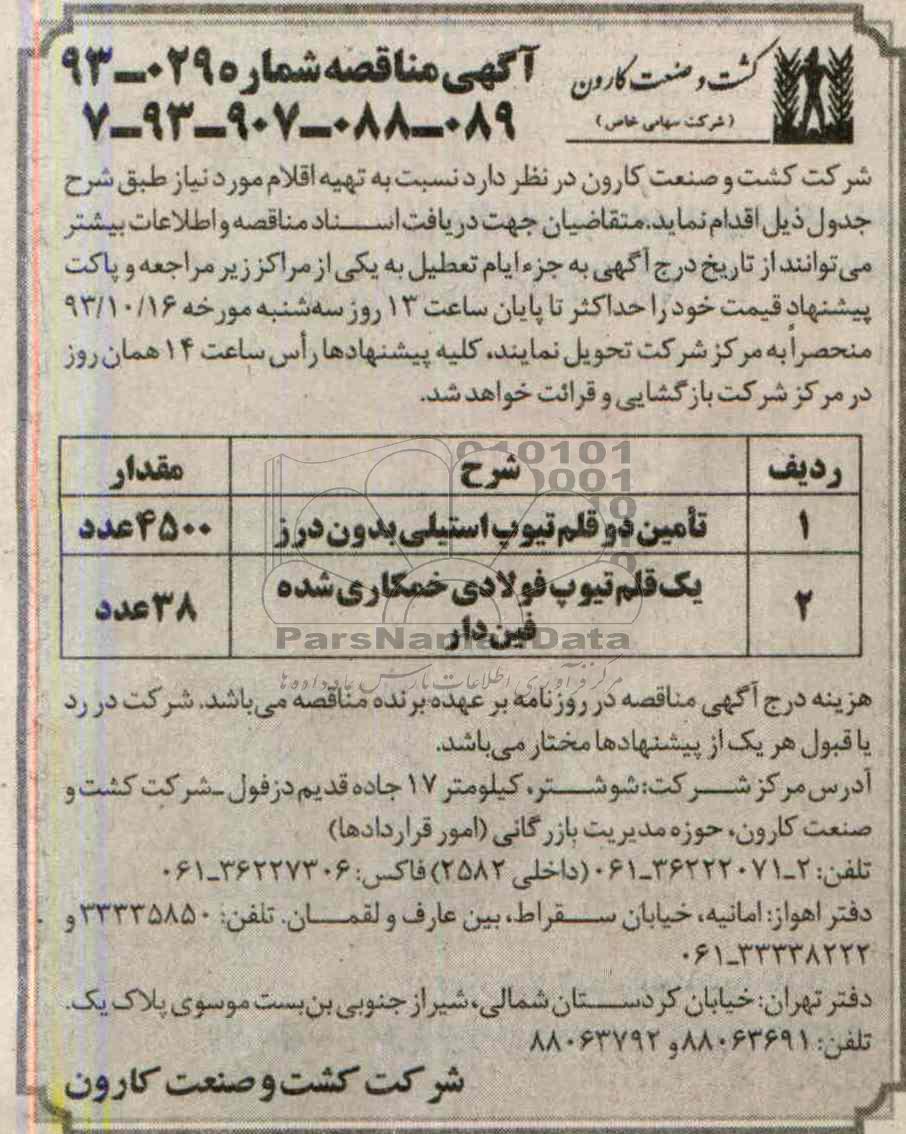 کشت و صنعت کارون
(شرکت سهامی خاص)
آگهی مناقصه شماره ۰۲۹-۹۳
۰۸۹-۰۸۸-۹۰۷-۹۳-۷
شرکت کشت و صنعت کارون در نظر دارد نسبت به تهیه اقلام مورد نیاز طبق شرح
جدول ذیل اقدام نماید.متقاضیان جهت دریافت اسناد مناقصه و اطلاعات بیشتر
می‌توانند از تاریخ درج آگهی به جزء ایام تعطیل به یکی از مراکز زیر مراجعه و پاکت
پیشنهاد قیمت خود را حداکثر تا پایان ساعت ۱۳ روز سه‌شنبه مورخه ۹۳/۱۰/۱۶
منحصراً به مرکز شرکت تحویل نمایند، کلیه پیشنهادها رأس ساعت ۱۴ همان روز
در مرکز شرکت بازگشایی و قرائت خواهد شد.
ردیف شرح مقدار
۱ تأمین دو قلم تیوپ استیلی بدون درز ۴۵۰۰ عدد
۲ یک قلم تیوپ فولادی خمکاری شده ۳۸ عدد
فین دار
ParsNamadData
مرکز فرآوری اطلاعات پارس نماد داده ها
هزینه درج آگهی مناقصه در روزنامه بر عهده برنده مناقصه می‌باشد. شرکت در رد
یا قبول هر یک از پیشنهادها مختار می‌باشد.
آدرس مرکز شرکت: شوشتر، کیلومتر ۱۷ جاده قدیم دزفول -شرکت کشت و
صنعت کارون، حوزه مدیریت بازرگانی (امور قراردادها)
تلفن: ۲-۳۶۲۲۲۰۷۱-۰۶۱ (داخلی ۲۵۸۲) فاکس: ۳۶۲۲۷۳۰۶-۰۶۱
دفتر اهواز: امانیه، خیابان سقراط، بین عارف و لقمان. تلفن: ۳۳۳۳۵۸۵۰ و
۳۳۳۳۸۲۲۲-۰۶۱
دفتر تهران: خیابان کردستان شمالی، شیراز جنوبی بن‌بست موسوی پلاک یک.
تلفن: ۸۸۰۶۳۶۹۱ و ۸۸۰۶۳۷۹۲
شرکت کشت و صنعت کارون